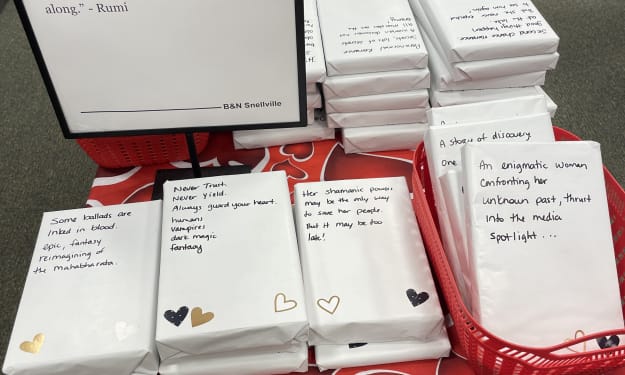 along.” - Rumi
B&N Snellville
Some ballads are
inked in blood.
epic, fantasy
reimagining of
the Mahabharata.
Never Trust.
Never Yield.
Always guard your heart.
humans
vampires
dark magic
fantasy
Her shamanic powers
may be the only way
to save her people.
But it may be too
late!
An enigmatic woman
confronting her
unknown past, thrust
into the media
spotlight...
A story of discovery
One
Paranormal Romance
Second chance romance
good things happen
at the lake